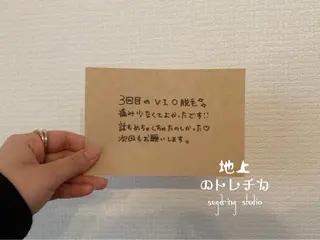 3回目のVIO脱毛
痛み少なくてよかったです!!
話もめちゃくちゃたのしかった♡
次回もお願いします。
地上
のトレチカ
sugaring studio